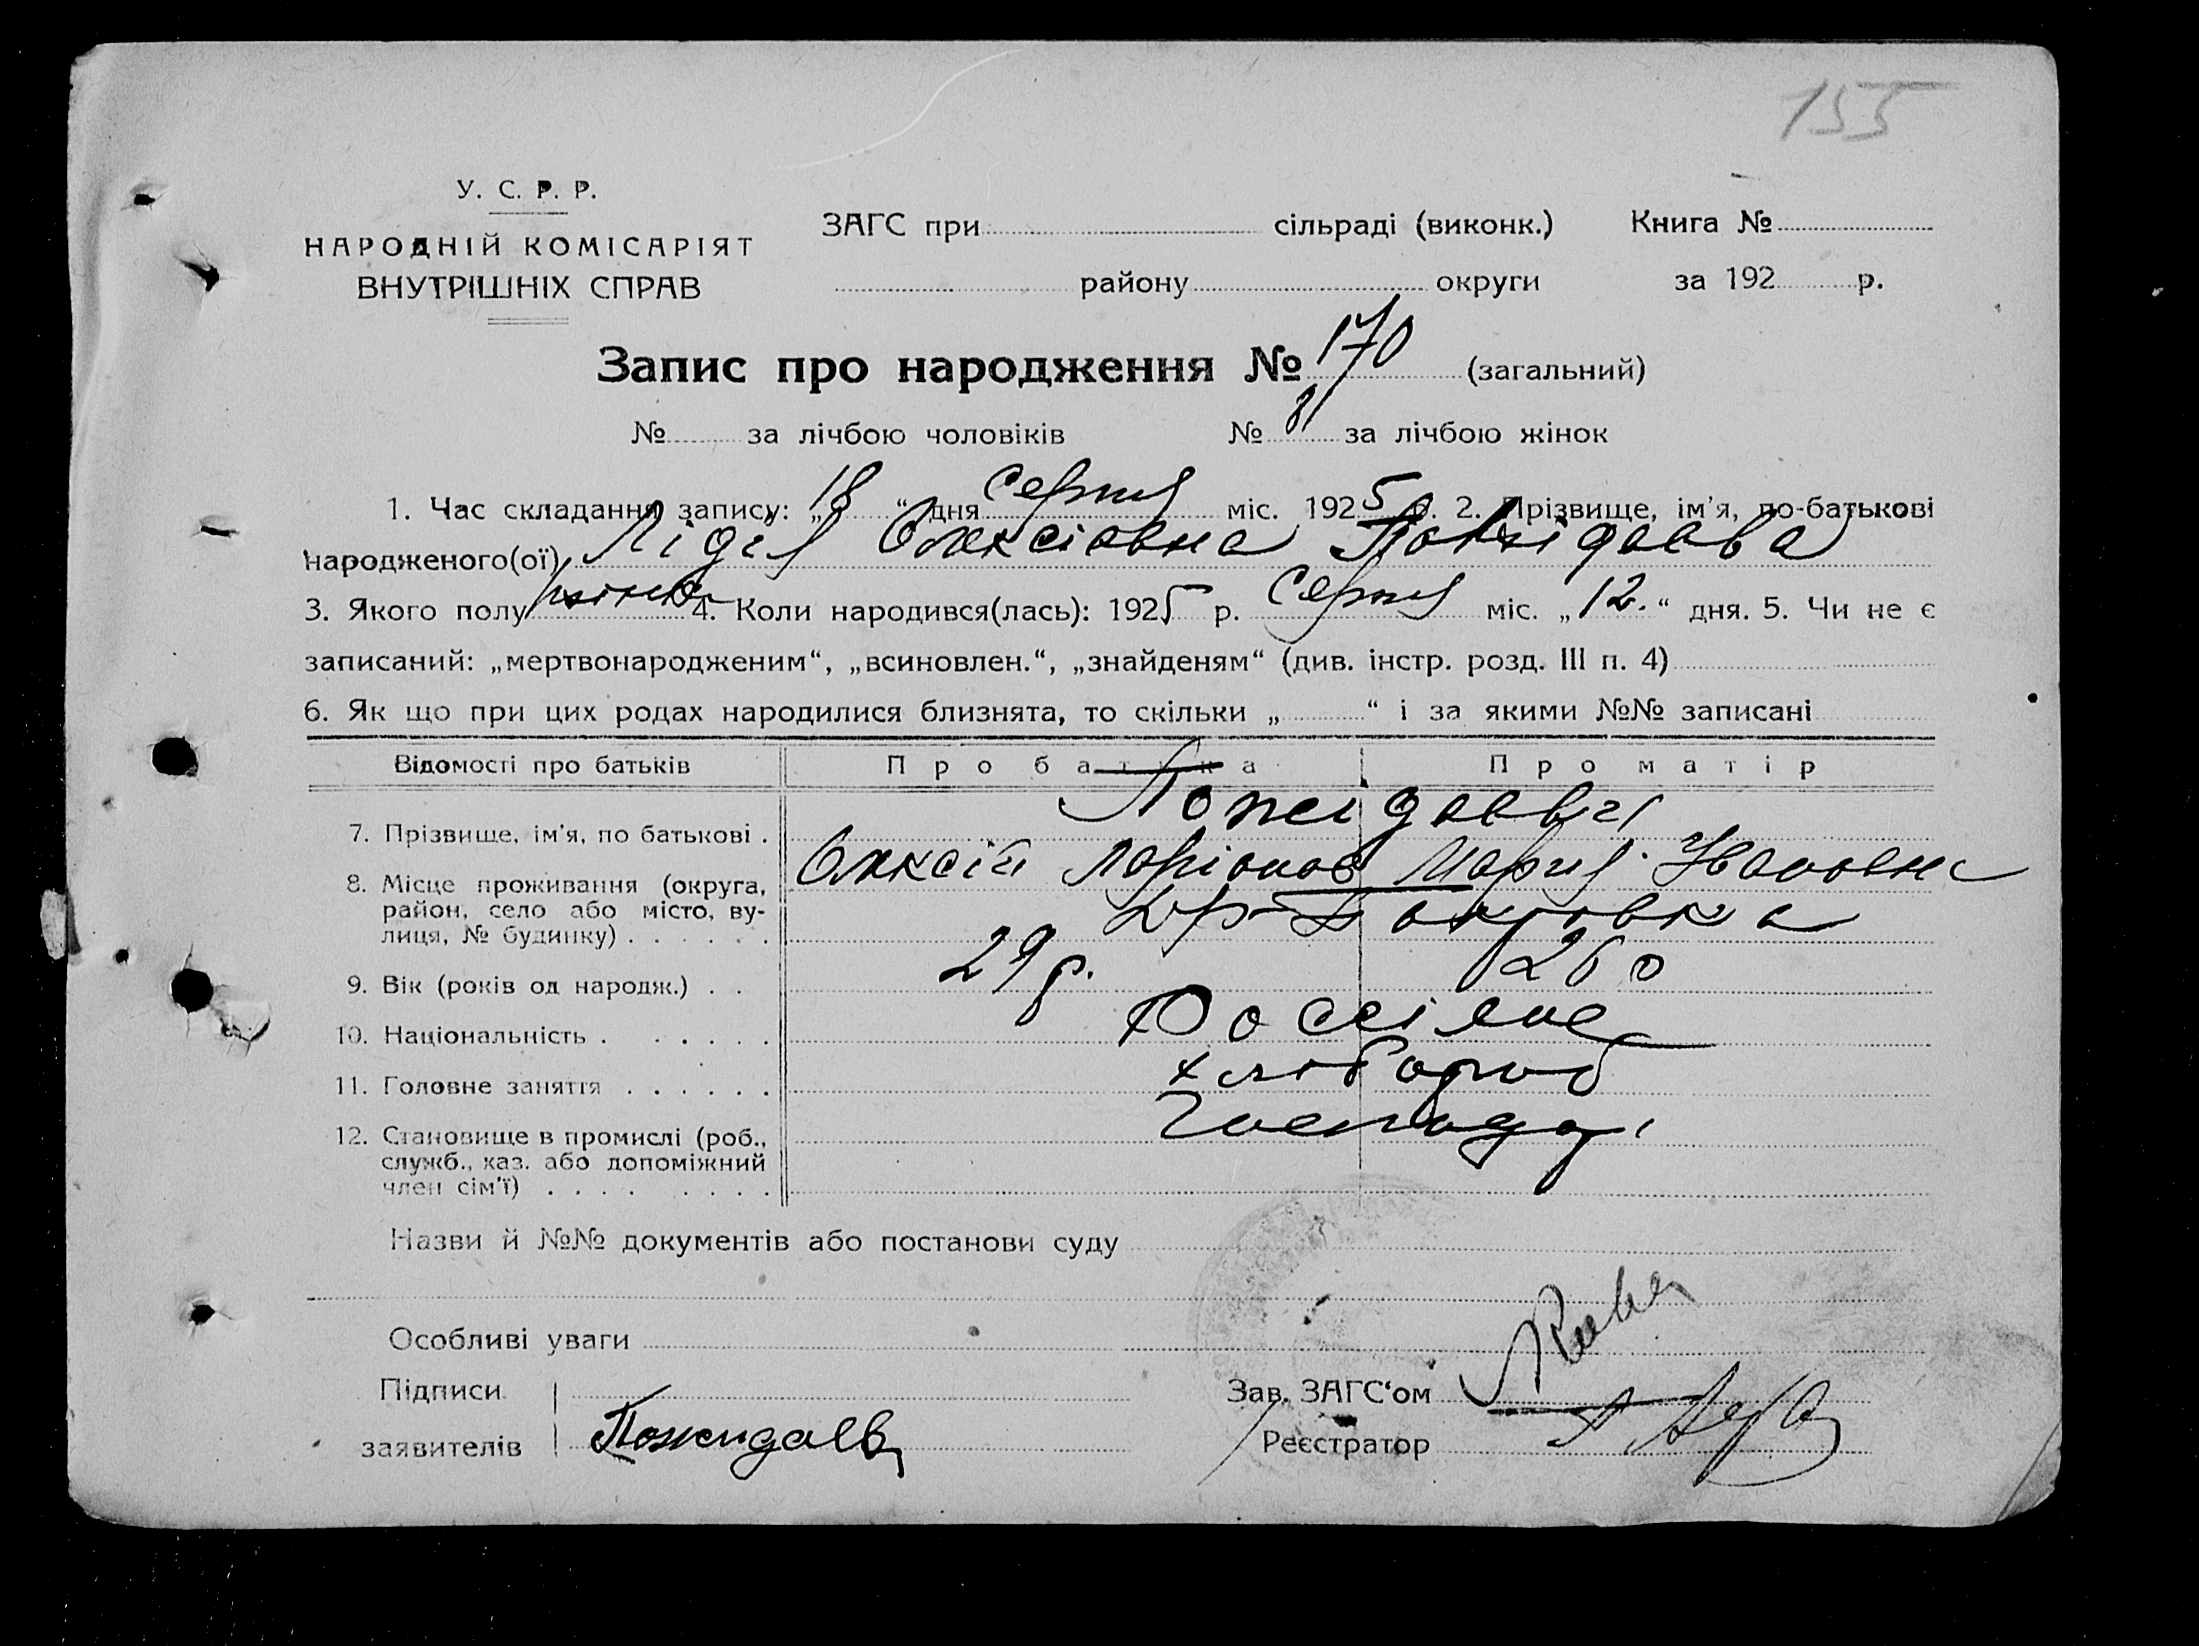 155
У. С. Р. Р.
НАРОДНІЙ КОМІСАРІЯТ
ВНУТРІШНІХ СПРАВ
ЗАГС при сільраді (виконк.) Книга №
району округи за 192 р.
Запис про народження № 170 (загальний)
№ за лічбою чоловіків № 81 за лічбою жінок
1. Час складання запису: „18“ дня Серпня міс. 1925 р. 2. Прізвище, ім'я, по-батькові
народженого(ої) Лідія Олексіовна Пожідаєва
3. Якого полу жіноч. 4. Коли народився(лась): 1925 р. Серпня міс. „12.“ дня. 5. Чи не є
записаний: „мертвонародженим“, „всиновлен.“, „знайденям“ (див. інстр. розд. III п. 4)
6. Як що при цих родах народилися близнята, то скільки „ “ і за якими №№ записані
Відомості про батьків Про батька Про матір
Пожідаєви
7. Прізвище, ім'я, по батькові .
Олексій Ларіонов Мария Івановна
8. Місце проживання (округа,
район, село або місто, ву-
лиця, № будинку) . . . . . .
9. Вік (років од народж.) . . 29 р. 26
10. Національність . . . . . . Россіяне
11. Головне заняття . . . . . . хлібороб
12. Становище в промислі (роб., Господарі
служб., хаз. або допоміжний
член сім'ї) . . . . . . . .
Назви й №№ документів або постанови суду
Особливі уваги
Підписи Зав. ЗАГС‘ом
заявителів Пожидаев Реєстратор